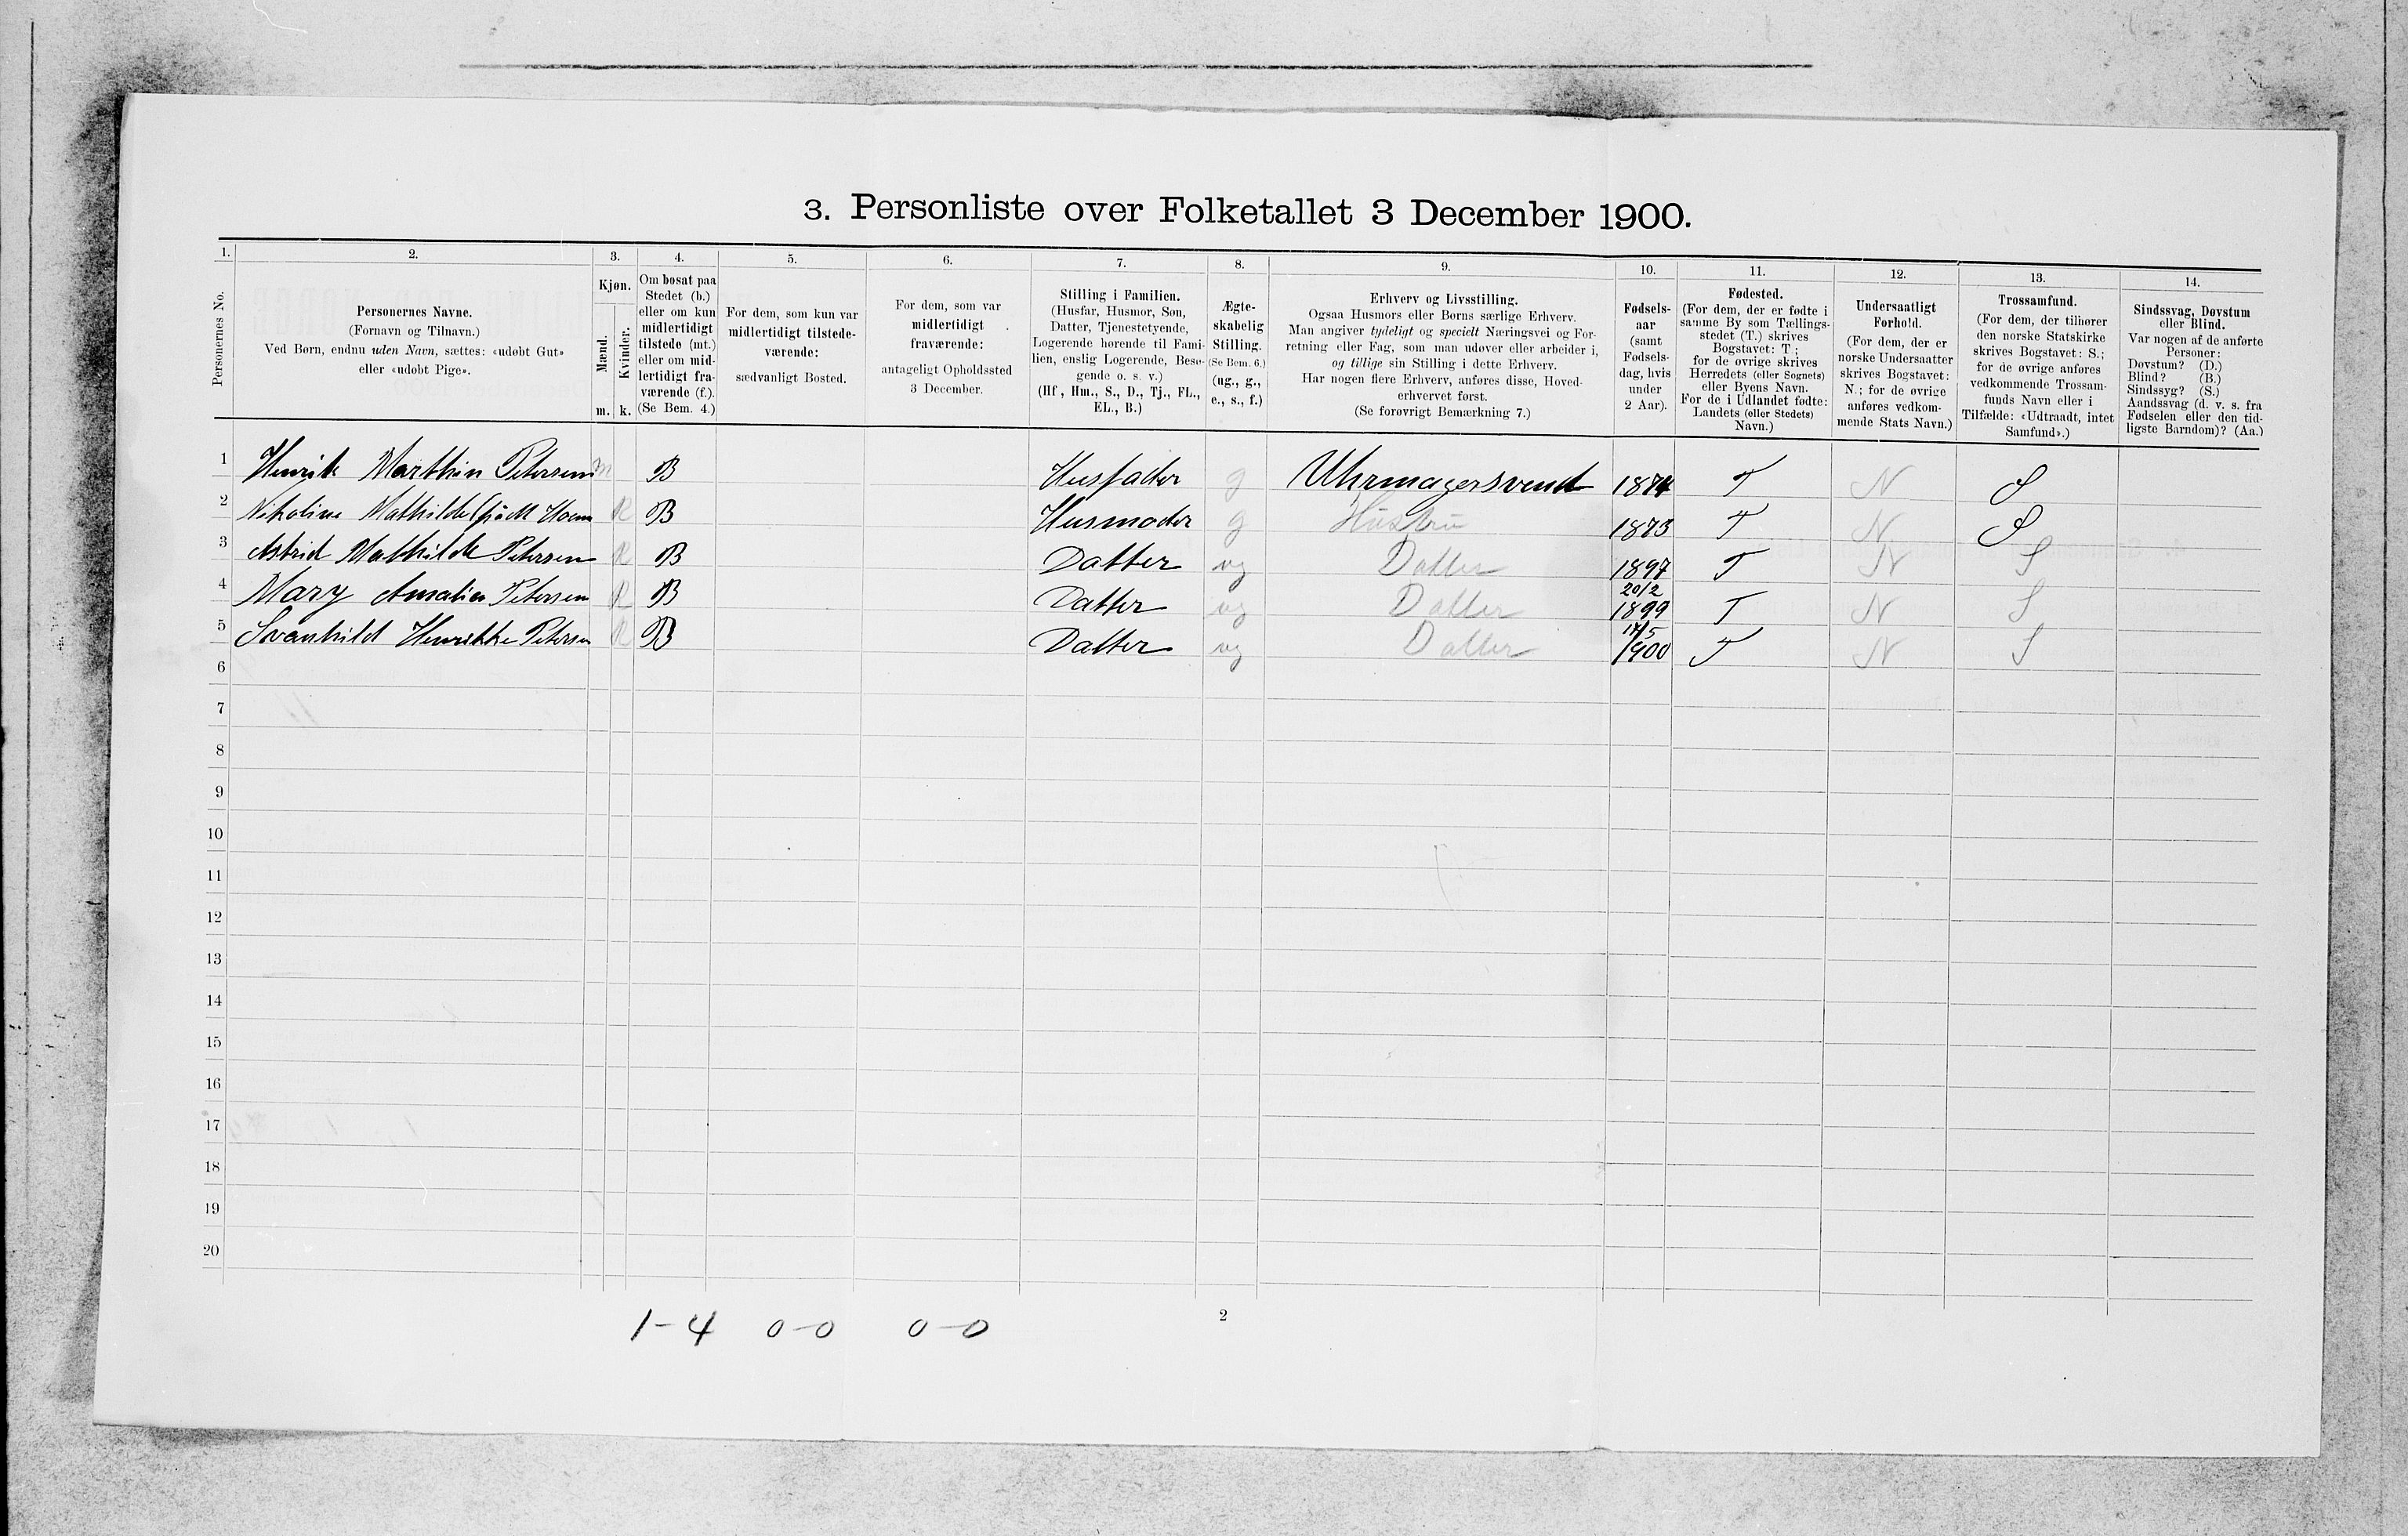 3. Personliste over Folketallet 3 December 1900.
1. 2. 3. 4. 5. 6. 7. 8. 9. 10. 11. 12. 13. 14.
Personernes No.
Personernes Navne.
(Fornavn og Tilnavn.)
Ved Børn, endnu uden Navn, sættes: «udøbt Gut»
eller «udøbt Pige».
Kjøn.
Mænd.
Kvinder.
m. k.
Om bosat paa
Stedet (b.)
eller om kun
midlertidigt
tilstede (mt.)
eller om mid-
lertidigt fra-
værende (f.).
(Se Bem. 4.)
For dem, som kun var
midlertidigt tilstede-
værende:
sædvanligt Bosted.
For dem, som var
midlertidigt
fraværende:
antageligt Opholdssted
3 December.
Stilling i Familien.
(Husfar, Husmor, Søn,
Datter, Tjenestetyende,
Logerende hørende til Fami-
lien, enslig Logerende, Besø-
gende o. s. v.)
(Hf., Hm., S., D., Tj., FL.,
EL., B.)
Ægte-
skabelig
Stilling.
(Se Bem. 6.)
(ug., g.,
e., s., f.)
Erhverv og Livsstilling.
Ogsaa Husmors eller Børns særlige Erhverv.
Man angiver tydeligt og specielt Næringsvei og For-
retning eller Fag, som man udøver eller arbeider i,
og tillige sin Stilling i dette Erhverv.
Har nogen flere Erhverv, anføres disse, Hoved-
erhvervet først.
(Se forøvrigt Bemærkning 7.)
Fødsels-
aar
(samt
Fødsels-
dag, hvis
under
2 Aar).
Fødested.
(For dem, der er fødte i
samme By som Tællings-
stedet (T.) skrives
Bogstavet: T;
for de øvrige skrives
Herredets (eller Sognets)
eller Byens Navn.
For de i Udlandet fødte:
Landets (eller Stedets)
Navn.)
Undersaatligt
Forhold.
(For dem, der er
norske Undersaatter
skrives Bogstavet:
N.; for de øvrige
anføres vedkom-
mende Stats Navn.)
Trossamfund.
(For dem, der tilhører
den norske Statskirke
skrives Bogstavet: S.;
for de øvrige anføres
vedkommende Trossam-
funds Navn eller i
Tilfælde: «Udtraadt, intet
Samfund».)
Sindssvag, Døvstum
eller Blind.
Var nogen af de anførte
Personer:
Døvstum? (D.)
Blind? (B.)
Sindssyg? (S.)
Aandssvag (d. v. s. fra
Fødselen eller den tid-
ligste Barndom)? (Aa.)
1 Henrik Marthin Petersen m B Husfader g Uhrmagersvend 1874 T N S
2 Nikoline Mathilde (født K B Husmoder g Hustru 1873 T N S
3 Astrid Mathilde Petersen K B Datter ug Datter 1897 T N S
4 Mary Amalia Petersen K B Datter ug Datter 20/2 1899 T N S
5 Svanhild Henrikke Petersen K B Datter ug Datter 17/5 1900 T N S
6
7
8
9
10
11
12
13
14
15
16
17
18
19
20
1-4 0-0 0-0
2